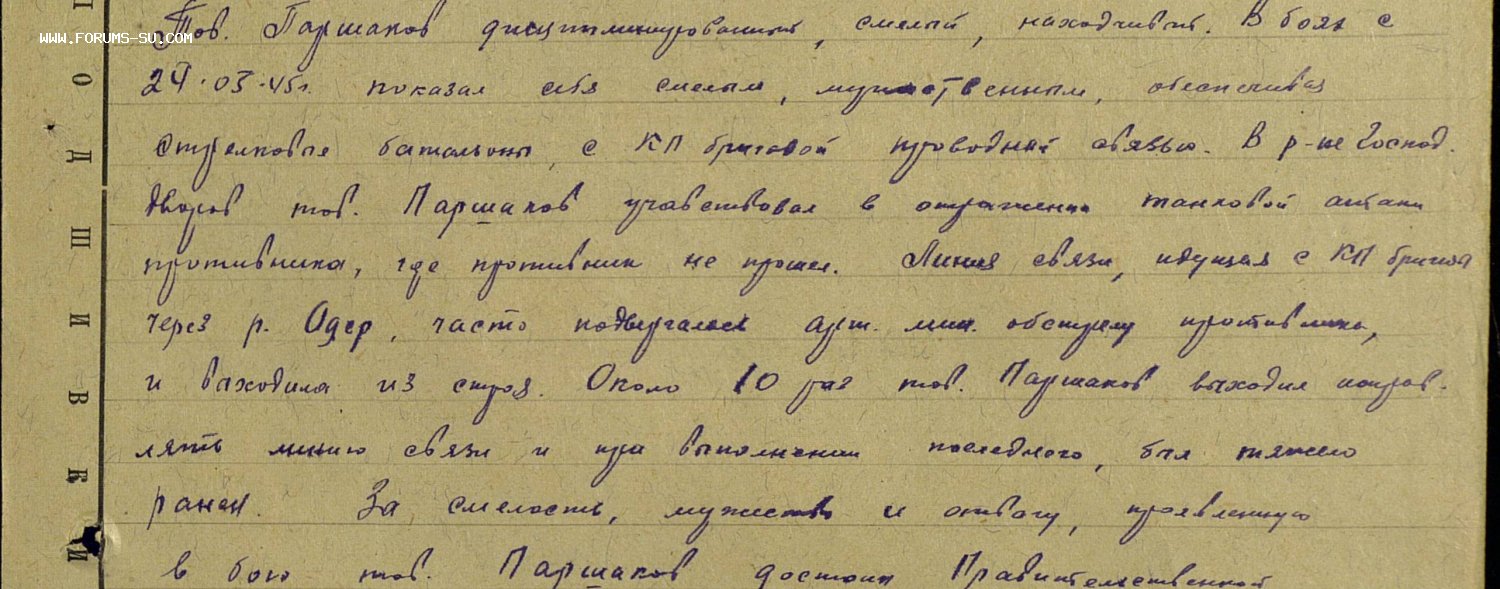 WWW.FORUMS-SU.COM
ПОДШИВКИ
Тов. Паршаков дисциплинированный, смелый, находчивый. В боях с
24.03.45г. показал себя смелым, мужественным, обеспечивая
стрелковые батальоны с КП бригадой проводной связью. В р-не Господ.
дворов тов. Паршаков учавствовал в отражении танковой атаки
противника, где противник не прошел. Линия связи, идущая с КП бригады
через р. Одер, часто подвергалась арт. мин. обстрелу противника,
и выходила из строя. Около 10 раз тов. Паршаков выходил исправ-
лять линию связи и при выполнении последнего, был тяжело
ранен. За смелость, мужество и отвагу, проявленную
в бою тов. Паршаков достоин Правительственной